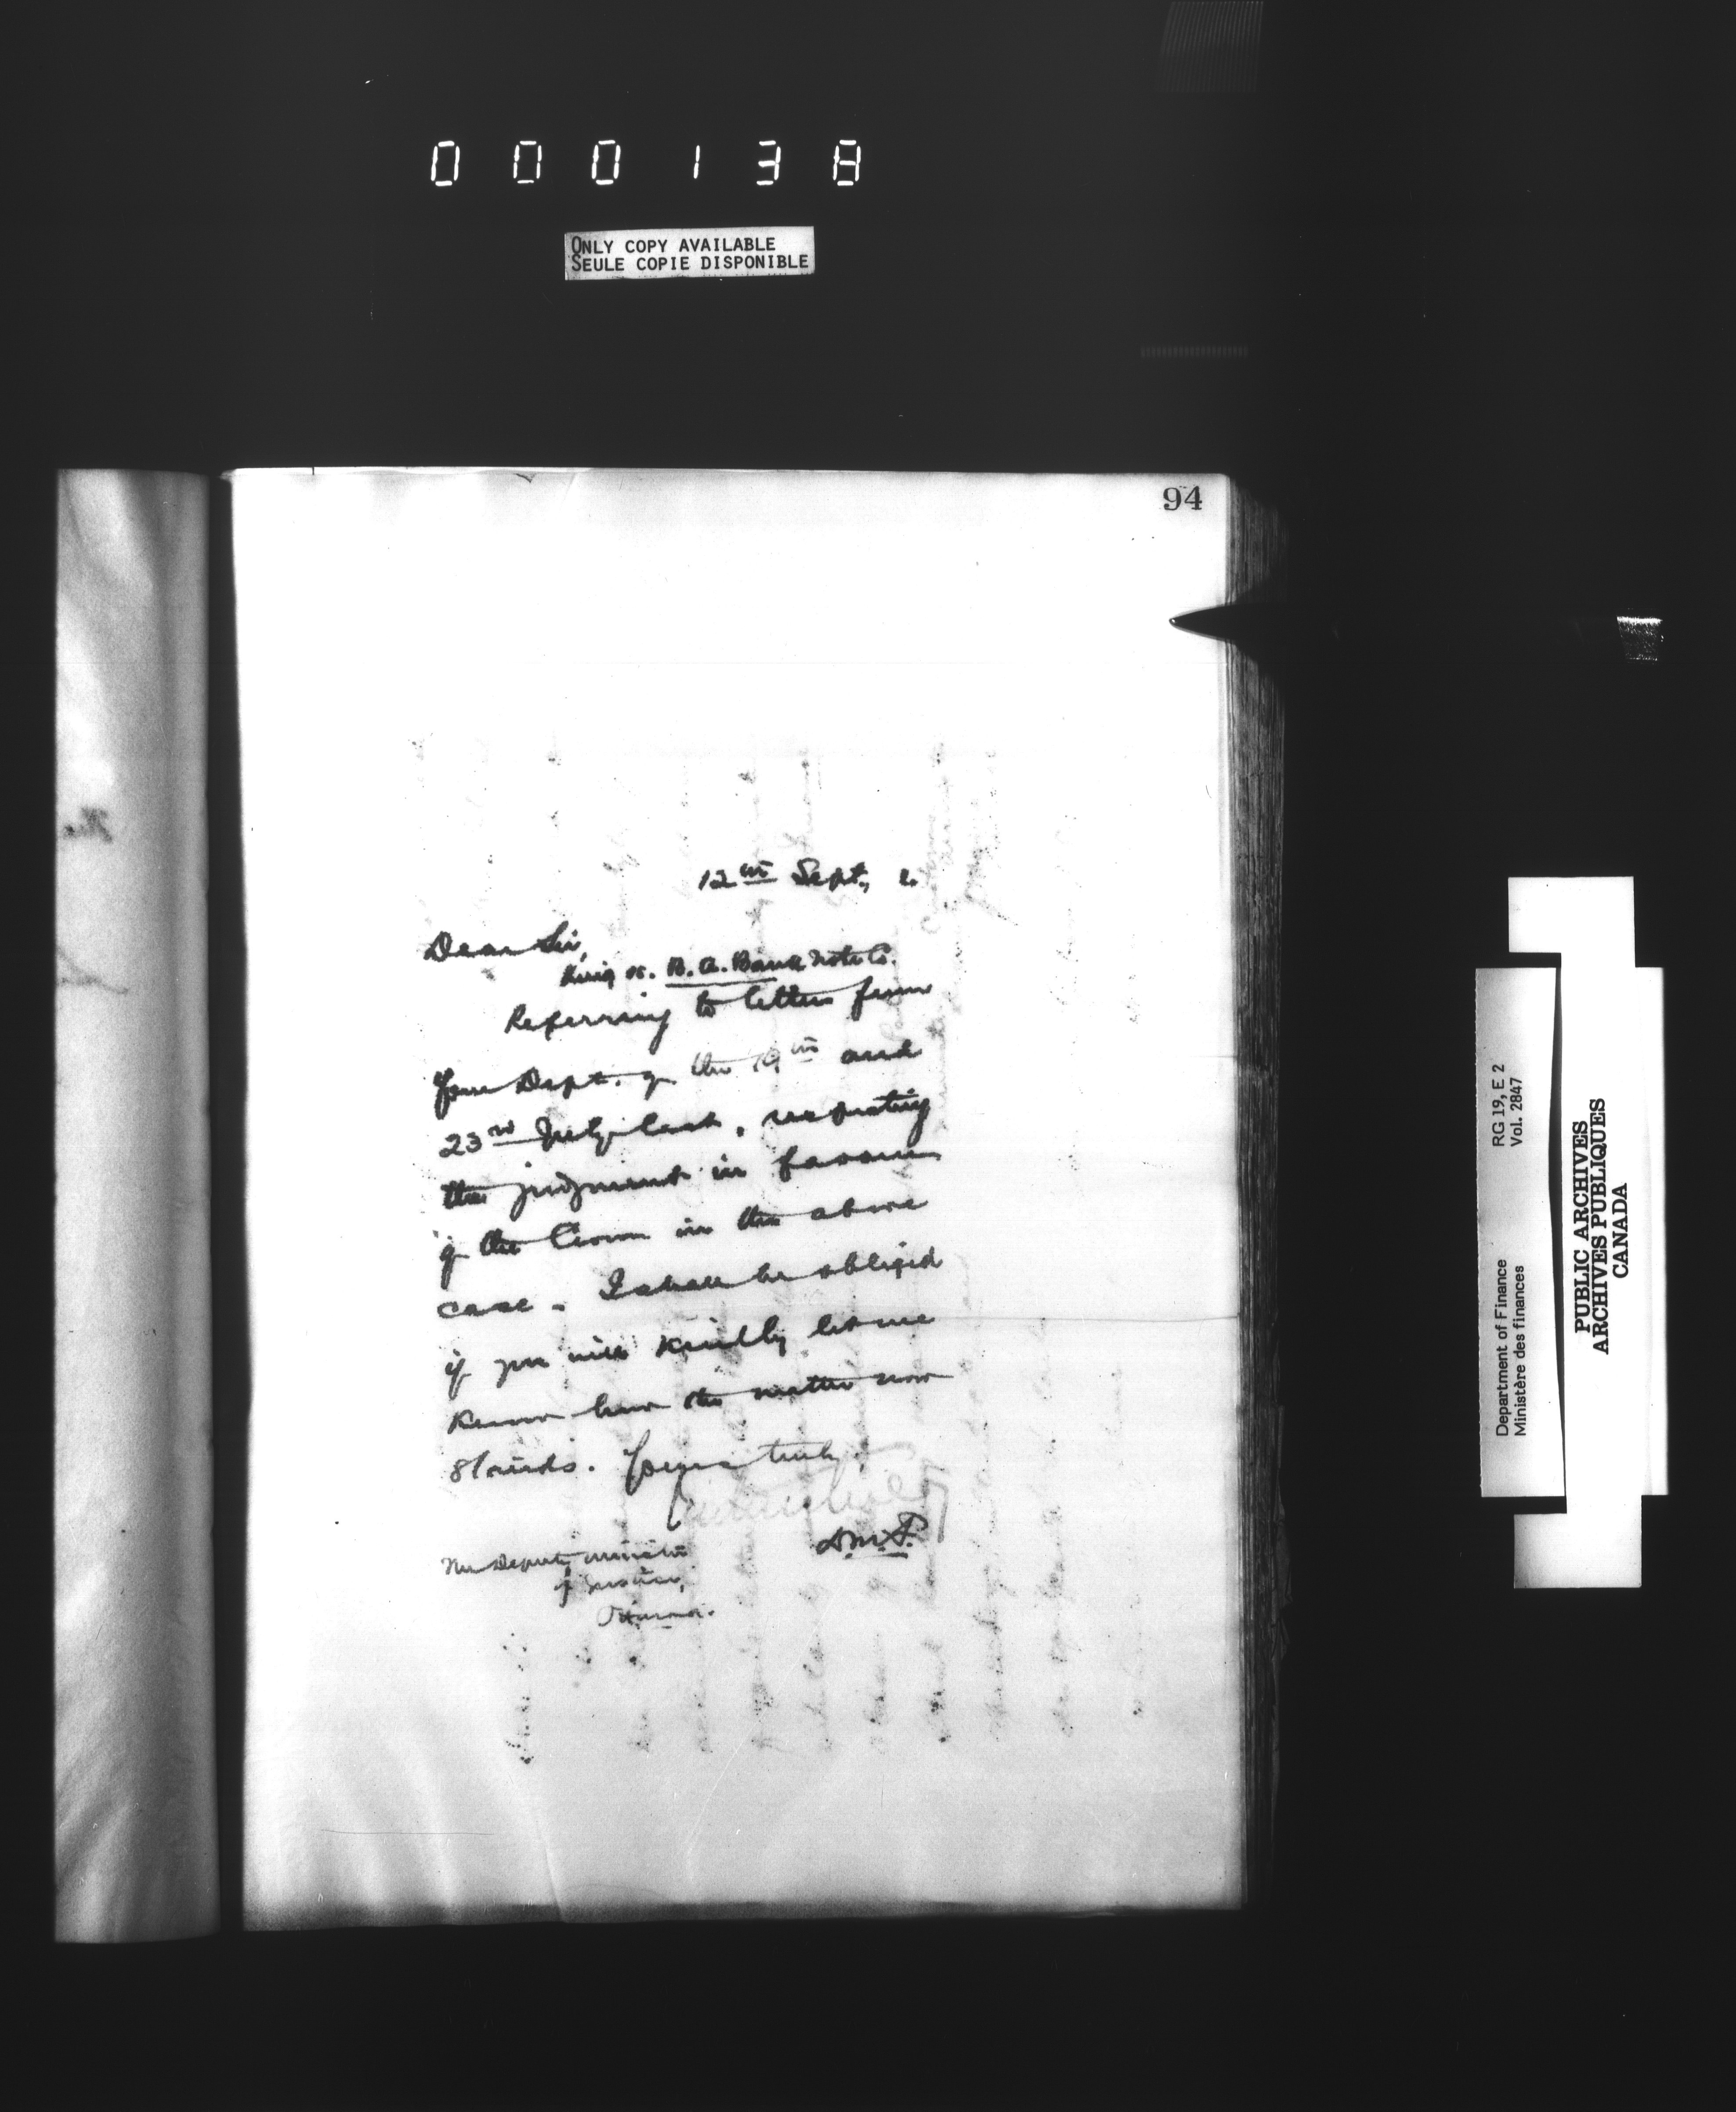 000138
ONLY COPY AVAILABLE
SEULE COPIE DISPONIBLE
94
12th Sept., 2
Dear Sir,
King vs. B. A. Bank Note Co.
Referring to letters from
your Dept. of the th and
23rd July last, respecting
the judgment in favour
of the Crown in the above
case. I shall be obliged
if you will kindly let me
know how the matter now
stands. Yours truly,
D.M.F.
The Deputy Minister
of Justice,
Ottawa.
The
Department of Finance RG 19, E 2
Ministère des finances Vol. 2847
PUBLIC ARCHIVES
ARCHIVES PUBLIQUES
CANADA